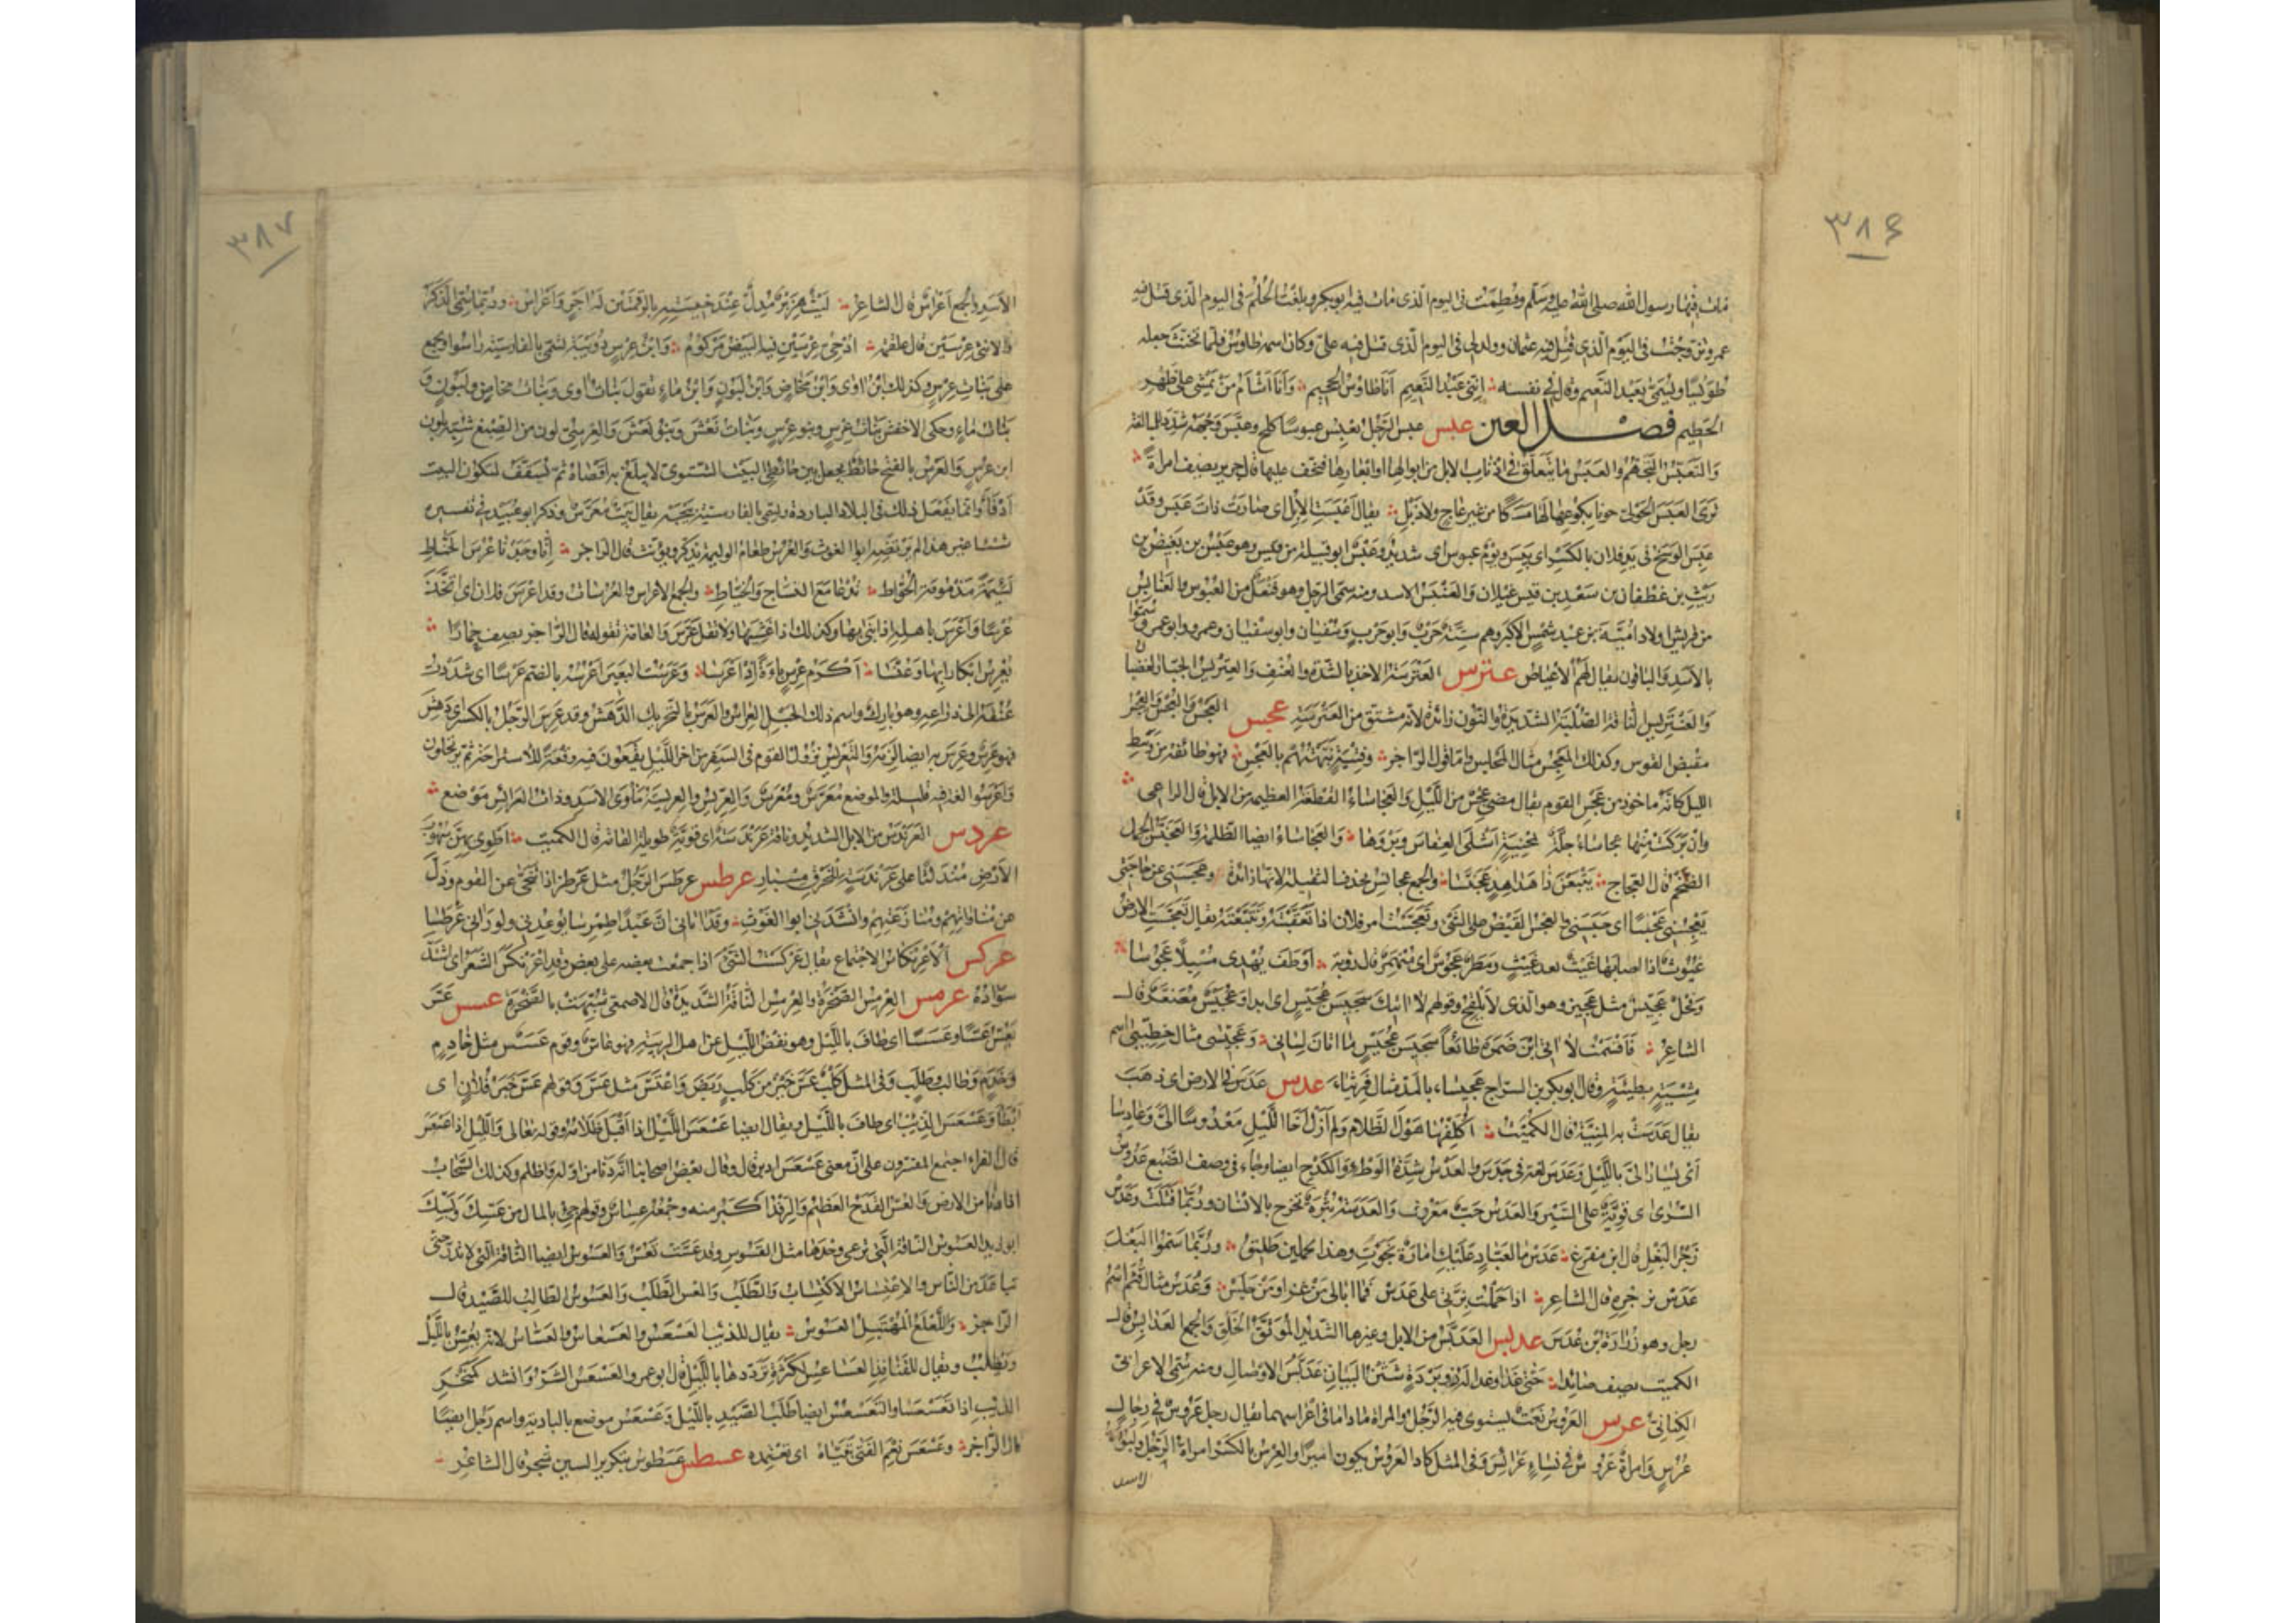 ٣٨۶
مات فيها رسول الله صلى الله عليه وسلم وفطمت فى اليوم الذى مات فيه ابو بكر وبلغت الحلم فى اليوم الذى قتل فيه
عمر وتزوجت فى اليوم الذى قتل فيه عثمان وولد لى فى اليوم الذى قتل فيه على وكان اسمه طاوس فلما تخنث جعله
طويسا ويسمى بعبد النعيم وقال فى نفسه اننى عبد النعيم انا طاوس الجحيم وانا اشأم من يمشى على ظهر
الحطيم فصل العين عبس عبس الرجل يعبس عبوسا كلح وعبس وجهه شدد للمبالغة
والتعبس التجهم والعبس ما يتعلق فى اذناب الابل من ابوالها وابعارها فتجف عليها قال جرير يصف امراة
ترى العبس الحولى جونا بكوعها لها مسكا من غير عاج ولا ذبل يقال اعبست الابل اى صارت ذات عبس وقد
عبس الوسخ فى يد فلان بالكسر اى يبس ويوم عبوس اى شديد وعبس ابو قبيلة من قيس وهو عبس بن بغيض بن
ريث بن غطفان بن سعد بن قيس عيلان والعنبس الاسد ومنه سمى الرجل وهو فنعل من العبوس والعنابس
من قريش اولاد امية بن عبد شمس الاكبر وهم ستة حرب وابو حرب وسفيان وابو سفيان وعمرو وابو عمرو سموا
بالاسد والباقون يقال لهم الاعياص عترس العترسة الاخذ بالشدة والعنف والعتريس الجبار الغضبان
والعنتريس الناقة الصلبة الشديدة والنون زائدة لانه مشتق من العترسة عجس العجس والعجس والعجس
مقبض القوس وكذلك المعجس مثال المجلس واما قول الراجز وفتية نبهتهم بالعجس فهو طائفة من وسط
الليل كانه ماخوذ من عجس القوس يقال مضى عجس من الليل والعجاساء القطعة العظيمة من الابل قال الراعى
وان بركت منها عجاساء جلة بمحنية اشلى العفاس وبروعا والعجاساء ايضا الظلمة والعجنس الجمل
الضخم قال العجاج يتبعن ذا هداهد عجنسا والجمع عجانس بحذف الثقيلة لانها زائدة وعجسنى عن حاجتى
يعجسنى عجسا اى حبسنى والعجس القبض على الشئ وتعجست امر فلان اذا تعقبته وتتبعته يقال تعجست الارض
غيوث اذا اصابها غيث بعد غيث ومطر عجوس اى منهمر قال روبة اوطف يهدى مسبلا عجوسا
وفحل عجيس مثل عجيز وهو الذى لا يلقح وقولهم لا اتيك سجيس عجيس اى ابدا وعجيس مصغر قال
الشاعر فاقسمت لا اتى ابن ضمرة طائعا سجيس عجيس ما ابان لسانى وعجيسى مثال خطيبى اسم
مشية بطيئة وقال ابو بكر بن السراج عجيساء بالمد مثال قريثاء عدس عدس فى الارض اى ذهب
يقال عدست به المنية قال الكميت اكلفها هول الظلام ولم ازل اخا الليل معدوسا الى وعادسا
اى يسار الى بالليل وعدس لغة فى حدس والعدس شدة الوطء والكدح ايضا وجاء فى وصف الضبع عدوس
السرى اى قوية على السير والعدس حب معروف والعدسة بثرة تخرج بالانسان وربما قتلت وعدس
زجر البغل قال ابن مفرغ عدس ما لعباد عليك امارة نجوت وهذا تحملين طليق وربما سموا البغل
عدس بزجره قال الشاعر اذا حملت بزتى على عدس فما ابالى من غزا ومن جلس وعدس مثال قثم اسم
رجل وهو زرارة بن عدس عدبس العدبس من الابل وغيرها الشديد الموثق الخلق والجمع العدابس قال
الكميت يصف صائدا حتى غدا وغدا له ذو بردة شثن البنان عدبس الاوصال ومنه سمى الاعرابى
الكنانى عرس العروس نعت يستوى فيه الرجل والمراة ما داما فى اعراسهما يقال رجل عروس فى رجال
عرس وامراة عروس فى نساء عرائس وفى المثل كاد العروس يكون اميرا والعرس بالكسر امراة الرجل ولبوة
الاسد
٣٨٧
الاسد والجمع اعراس قال الشاعر ليث هزبر مدل عند خيسته بالرقمتين له اجر واعراس وربما سمى الذكر
والانثى عرسين قال علقمة ادحى عرسين فيه البيض مركوم وابن عرس دويبة تسمى بالفارسية راسو ويجمع
على بنات عرس وكذلك ابن اوى وابن مخاض وابن لبون وابن ماء تقول بنات اوى وبنات مخاض ولبون و
بنات ماء وحكى الاخفش بنات عرس وبنو عرس وبنات نعش وبنو نعش والعرسى لون من الصبغ شبه بلون
ابن عرس والعرس بالفتح حائط يجعل بين حائطى البيت الشتوى لا يبلغ به اقصاه ثم يسقف ليكون البيت
ادفأ وانما يفعل ذلك فى البلاد الباردة ويسمى بالفارسية بيجه يقال بيت معرس وذكر ابو عبيد فى تفسيره
شيئا غير هذا لم يرتضه ابو الغوث والعرس طعام الوليمة يذكر ويونث قال الراجز انا وجدنا عرس الحناط
لئيمة مذمومة الحواط ندعى مع النساج والخياط والجمع الاعراس والعرسات وقد اعرس فلان اى اتخذ
عرسا واعرس باهله اذا بنى بها وكذلك اذا غشيها ولا تقل عرس والعامة تقوله قال الراجز يصف حمارا
يعرس ابكارا بها وعنسا اكرم عرس باءة اذ اعرسا وعرست البعير اعرسه بالضم عرسا اى شددت
عنقه الى ذراعه وهو بارك واسم ذلك الحبل العراس والعرس بالتحريك الدهش وقد عرس الرجل بالكسر اى دهش
فهو عرس وعرس به ايضا لزمه والتعريس نزول القوم فى السفر من اخر الليل يقعون فيه وقعة للاستراحة ثم يرتحلون
واعرسوا لغة فيه قليلة والموضع معرس ومعرس والعريس والعريسة ماوى الاسد وذات العرائس موضع
عردس العرندس من الابل الشديد وناقة عرندسة اى قوية طويلة القامة قال الكميت اطوى بهن سهوب
الارض مندلثا على عرندسة للخرق مسبار عرطس عرطس الرجل مثل عرطز اذا تنحى عن القوم وذل
عن مناواتهم ومنازعتهم وانشدنى ابو الغوث وقد اتانى ان عبدا طمرسا يوعدنى ولو رانى عرطسا
عركس الاعرنكاس الاجتماع يقال عركست الشئ اذا جمعت بعضه على بعض وقد اعرنكس الشعر اى اشتد
سواده عرمس العرمس الصخرة والعرمس الناقة الشديدة قال الاصمعى شبهت بالصخرة عسس عس
يعس عسا وعسسا اى طاف بالليل وهو نفض الليل عن اهل الريبة فهو عاس وقوم عسس مثل خادم
وخدم وطالب وطلب وفى المثل كلب عس خير من كلب ربض واعتس مثل عس وقولهم عس خبر فلان اى
ابطأ وعسعس الذيب اى طاف بالليل ويقال ايضا عسعس الليل اذا اقبل ظلامه وقوله تعالى والليل اذا عسعس
قال الفراء اجتمع المفسرون على ان معنى عسعس ادبر قال وقال بعض اصحابنا انه دنا من اوله واظلم وكذلك السحاب
اذا دنا من الارض والعس القدح العظيم والرفد اكبر منه وجمعه عساس وقولهم جئ بالمال من عسك وبسك
ابو زيد العسوس الناقة التى ترعى وحدها مثل القسوس وقد عست تعس والعسوس ايضا الناقة التى لا تدر حتى
تباعد من الناس والاعتساس الاكتساب والطلب والعس الطلب والعسوس الطالب للصيد قال
الراجز واللعلع المهتبل العسوس يقال للذئب العسعس والعسعاس والعساس لانه يعس بالليل
ويطلب ويقال للقنافذ العساعس لكثرة ترددها بالليل قال ابو عمرو العسعس الشره وانشد كمنخر
الذئب اذا تعسعسا والتعسعس ايضا طلب الصيد بالليل وعسعس موضع بالبادية واسم رجل ايضا
قال الراجز وعسعس نعم الفتى تبياه اى تعتمده عسطس عسطوس بتكرير السين شجر قال الشاعر